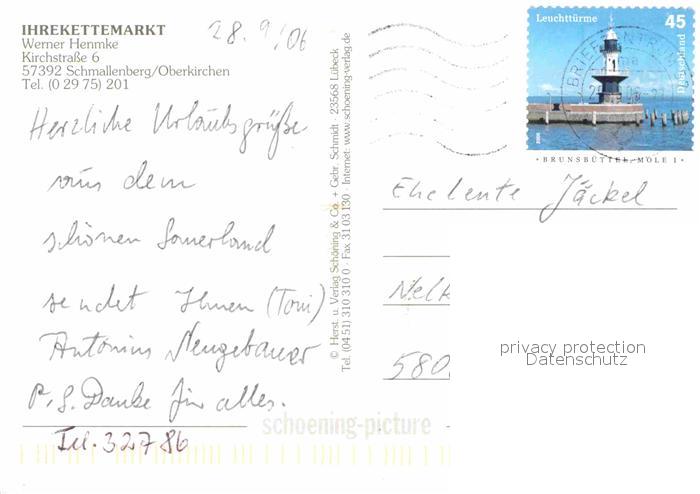 IHREKETTEMARKT
Werner Henmke
Kirchstraße 6
57392 Schmallenberg/Oberkirchen
Tel. (0 29 75) 201
28.9/06
Herzliche Urlaubsgrüße
aus dem
schönen Sauerland
sendet Ihnen (Toni)
Antonius Neugebauer
P.S. Danke für alles.
Tel. 32786
© Herst. u. Verlag Schöning & Co. + Gebr. Schmidt · 23568 Lübeck
Tel. (04 51) 310 310 0 · Fax 31 03 130 · Internet: www.schoening-verlag.de
Leuchttürme 45
Deutschland
2005
BRIEFZENTRUM
· BRUNSBÜTTEL, MOLE 1 ·
Eheleute Jäckel
Nelk
580
privacy protection
Datenschutz
schoening-picture